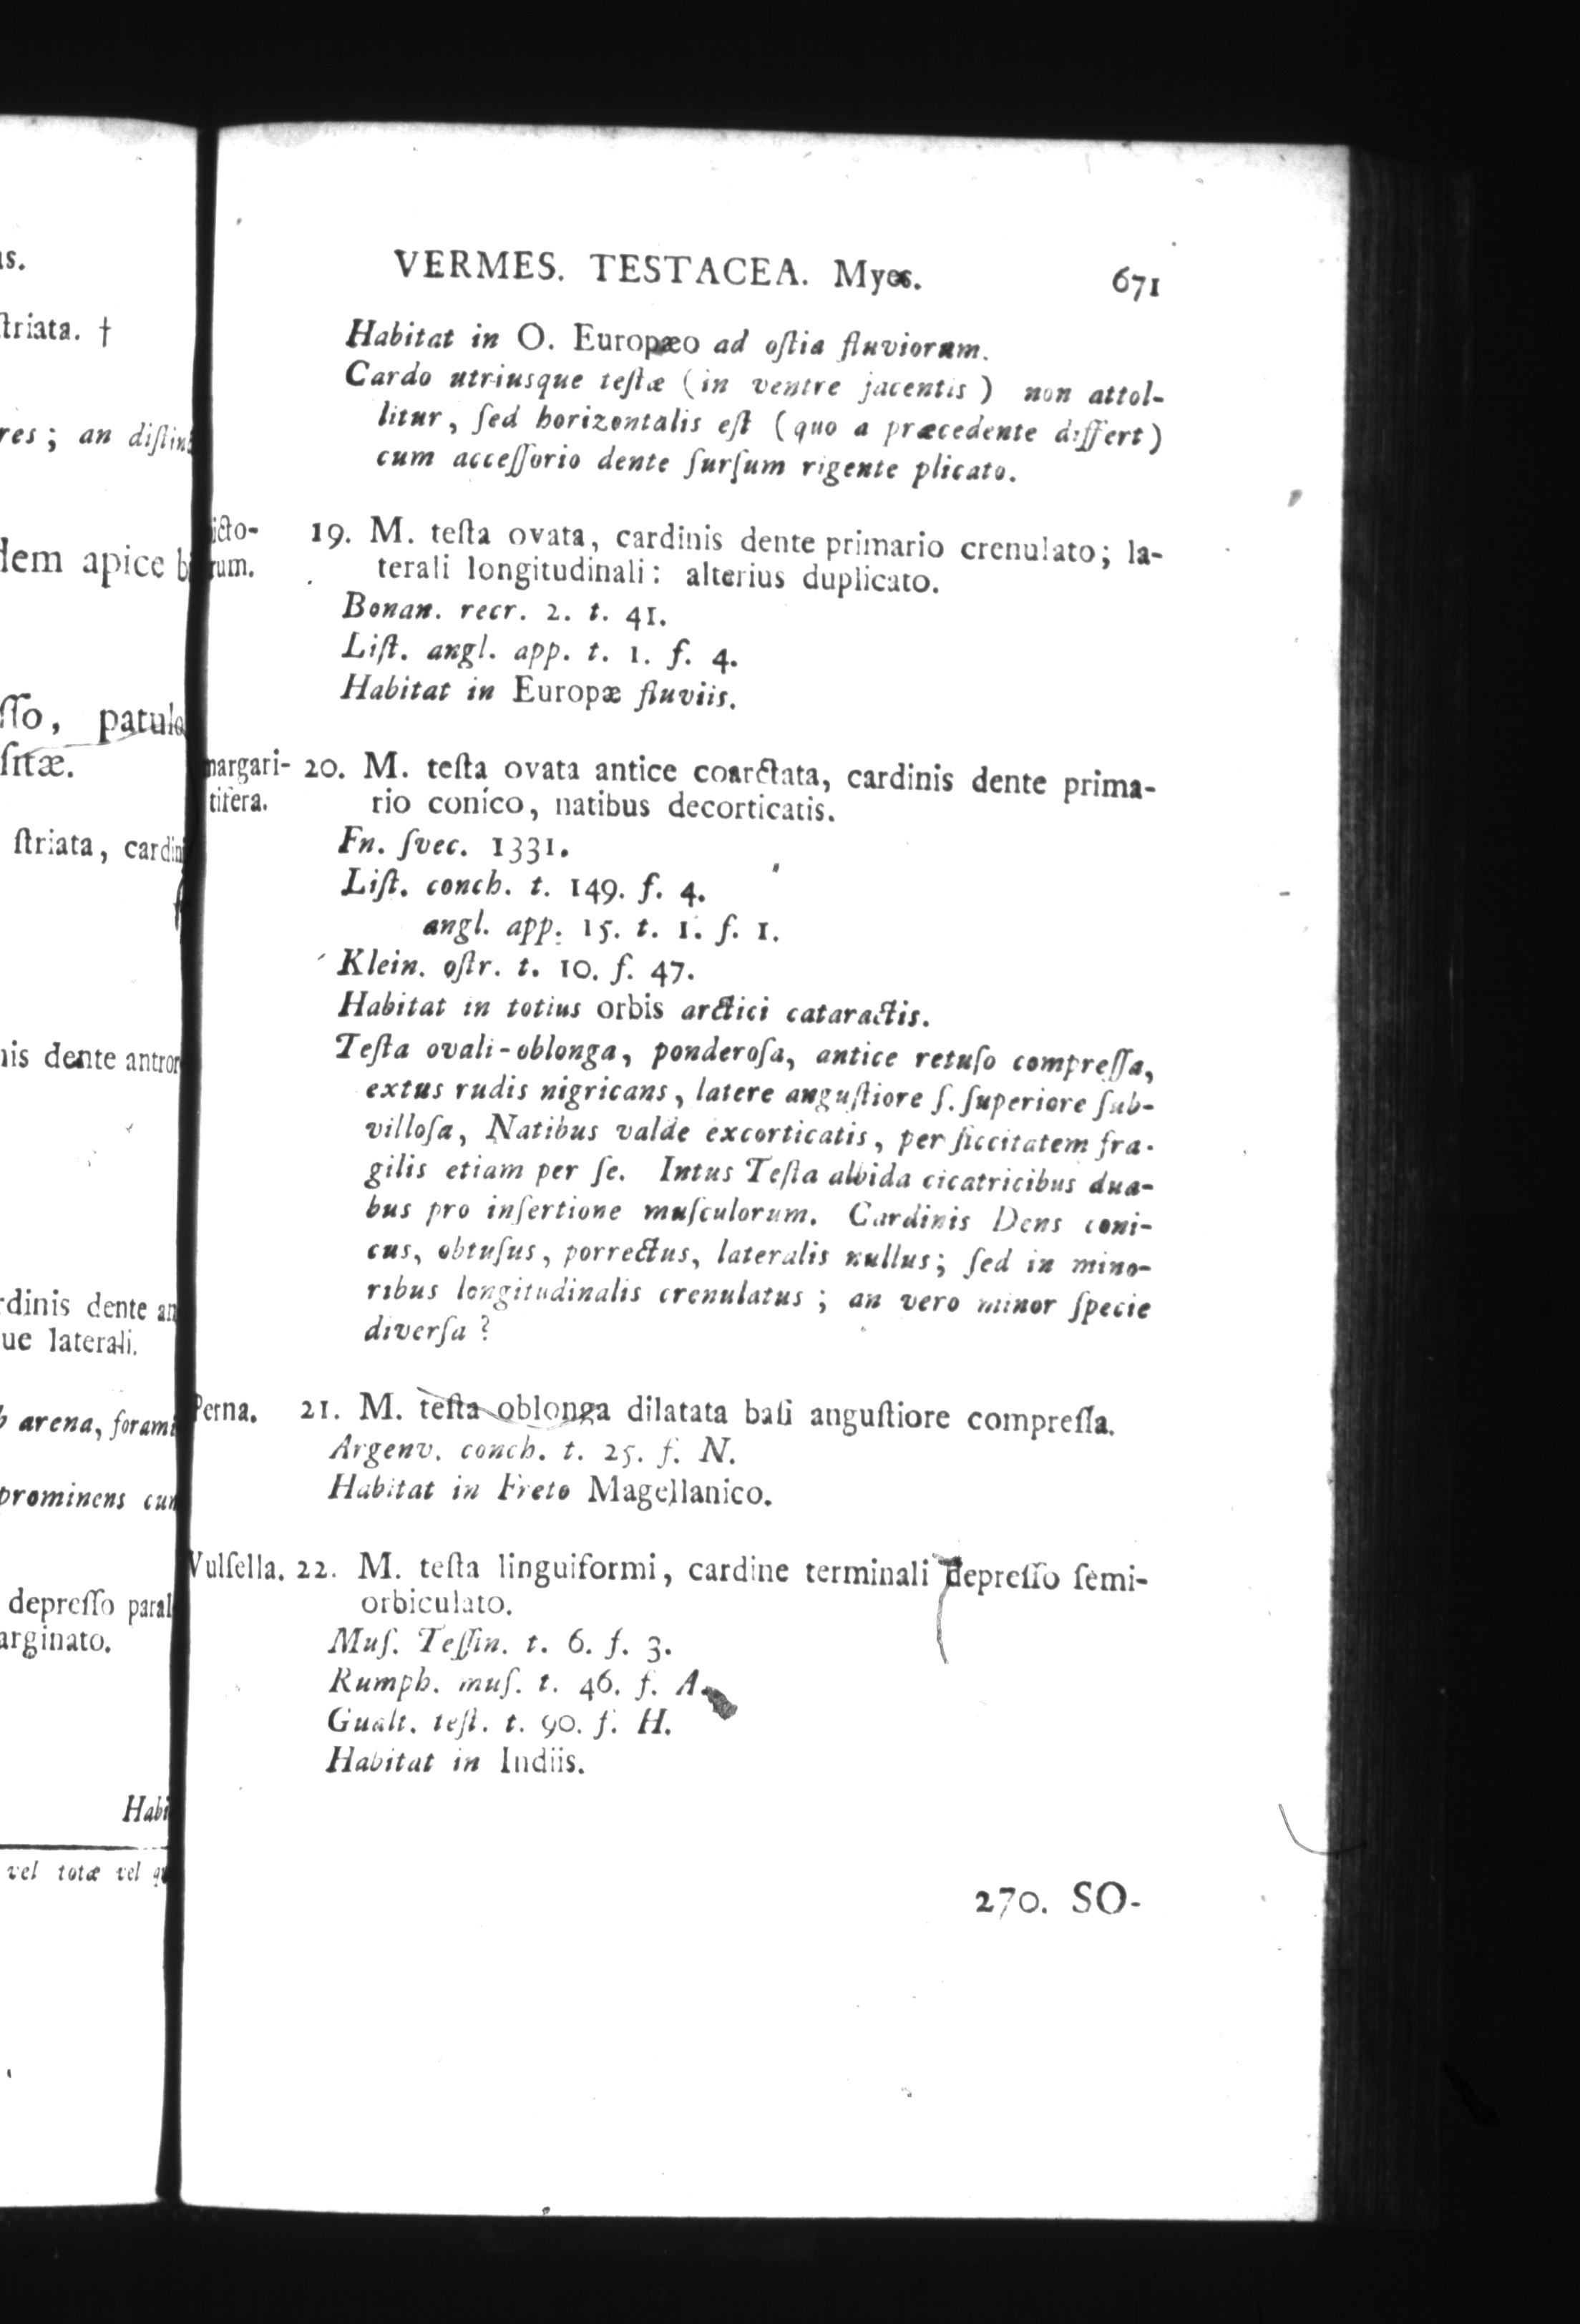 us.
ſtriata. †
res; an diſtin
dem apice b
ſſo, patulo
ſitæ.
ſtriata, cardin
nis dente antror
rdinis dente an
ue laterali.
arena, forami
prominens cum
depreſſo paral
arginato.
Habi
vel totæ vel qu
VERMES. TESTACEA. Myes. 671
Habitat in O. Europæo ad oſtia fluviorum.
Cardo utriusque teſtæ (in ventre jacentis) non attol-
litur, ſed horizontalis eſt (quo a præcedente differt)
cum acceſſorio dente ſurſum rigente plicato.
icto- 19. M. teſta ovata, cardinis dente primario crenulato; la-
rum. terali longitudinali: alterius duplicato.
Bonan. recr. 2. t. 41.
Liſt. angl. app. t. 1. f. 4.
Habitat in Europæ fluviis.
margari- 20. M. teſta ovata antice coarctata, cardinis dente prima-
tifera. rio conico, natibus decorticatis.
Fn. ſvec. 1331.
Liſt. conch. t. 149. f. 4.
angl. app. 15. t. 1. f. 1.
Klein. oſtr. t. 10. f. 47.
Habitat in totius orbis arctici cataractis.
Teſta ovali-oblonga, ponderoſa, antice retuſo compreſſa,
extus rudis nigricans, latere anguſtiore ſ. ſuperiore ſub-
villoſa, Natibus valde excorticatis, per ſiccitatem fra-
gilis etiam per ſe. Intus Teſta albida cicatricibus dua-
bus pro inſertione muſculorum. Cardinis Dens coni-
cus, obtuſus, porrectus, lateralis nullus; ſed in mino-
ribus longitudinalis crenulatus; an vero minor ſpecie
diverſa?
Perna. 21. M. teſta oblonga dilatata baſi anguſtiore compreſſa.
Argenv. conch. t. 25. f. N.
Habitat in Freto Magellanico.
Vulſella. 22. M. teſta linguiformi, cardine terminali depreſſo ſemi-
orbiculato.
Muſ. Teſſin. t. 6. f. 3.
Rumph. muſ. t. 46. f. A.
Gualt. teſt. t. 90. f. H.
Habitat in Indiis.
270. SO-